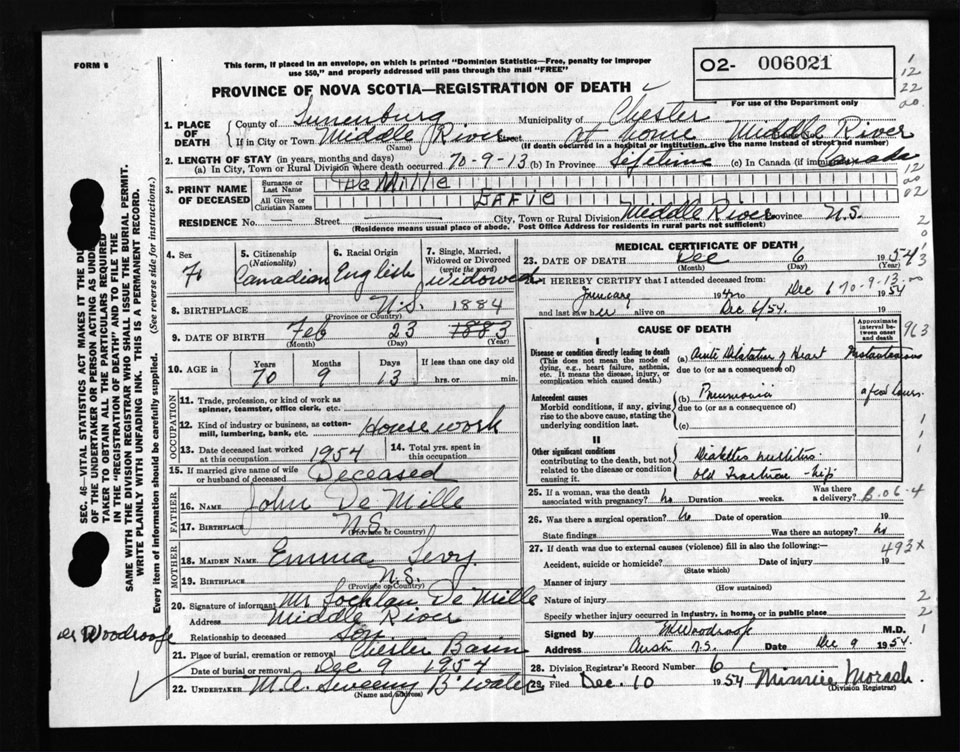 FORM 6
This form, if placed in an envelope, on which is printed "Dominion Statistics—Free, penalty for improper
use $50," and properly addressed will pass through the mail "FREE"
PROVINCE OF NOVA SCOTIA—REGISTRATION OF DEATH
02- 006021
For use of the Department only
1. PLACE OF DEATH
County of Lunenburg Municipality of Chester
If in City or Town Middle River Street At home Middle River
(Name) (If death occurred in a hospital or institution, give the name instead of street and number)
2. LENGTH OF STAY (in years, months and days)
(a) In City, Town or Rural Division where death occurred 70-9-13 (b) In Province Lifetime (c) In Canada (if immigrant) Canada
3. PRINT NAME OF DECEASED
Surname or Last Name De Mille
All Given or Christian Names Effie
RESIDENCE No. — Street — City, Town or Rural Division Middle River Province N.S.
(Residence means usual place of abode. Post Office Address for residents in rural parts not sufficient)
4. Sex F.
5. Citizenship (Nationality) Canadian
6. Racial Origin English
7. Single, Married, Widowed or Divorced (write the word) Widowed
8. BIRTHPLACE N.S.
(Province or Country)
1884
9. DATE OF BIRTH Feb 23 1883
(Month) (Day) (Year)
10. AGE in Years 70 Months 9 Days 13 If less than one day old hrs. or min.
OCCUPATION
11. Trade, profession, or kind of work as spinner, teamster, office clerk, etc.
12. Kind of industry or business, as cotton-mill, lumbering, bank, etc. Housework
13. Date deceased last worked at this occupation 1954
14. Total yrs. spent in this occupation
15. If married give name of wife or husband of deceased Deceased
FATHER
16. NAME John De Mille
17. BIRTHPLACE N.S.
(Province or Country)
MOTHER
18. MAIDEN NAME Emma Levy
19. BIRTHPLACE N.S.
(Province or Country)
20. Signature of informant Mr Lochlan De Mille
Address Middle River
Relationship to deceased son
21. Place of burial, cremation or removal Chester Basin
Date of burial or removal Dec 9 1954
22. UNDERTAKER M.A. Sweeny B'water
(Name and address)
MEDICAL CERTIFICATE OF DEATH
23. DATE OF DEATH Dec 6 1954
(Month) (Day) (Year)
24. I HEREBY CERTIFY that I attended deceased from:
January 19 to Dec 6 1954
70-9-13
and last saw her alive on Dec 6/54. 19
CAUSE OF DEATH
Approximate interval between onset and death
I
Disease or condition directly leading to death (This does not mean the mode of dying, e.g., heart failure, asthenia, etc. It means the disease, injury, or complication which caused death.)
(a) Acute Dilatation of Heart Instantaneous
due to (or as a consequence of)
Antecedent causes
Morbid conditions, if any, giving rise to the above cause, stating the underlying condition last.
(b) Pneumonia a few hours.
due to (or as a consequence of)
(c)
II
Other significant conditions contributing to the death, but not related to the disease or condition causing it.
Diabetes mellitus
old Fracture - hip
25. If a woman, was the death associated with pregnancy? no Duration weeks. Was there a delivery?
B-06-4
26. Was there a surgical operation? no Date of operation 19
State findings Was there an autopsy? no
27. If death was due to external causes (violence) fill in also the following:—
493X
Accident, suicide or homicide? Date of injury 19
(State which)
Manner of injury
(How sustained)
Nature of injury
Specify whether injury occurred in industry, in home, or in public place
Signed by EM Woodroofe M.D.
Address N.S. Date Dec 9 1954
28. Division Registrar's Record Number 6
29. Filed Dec. 10 1954 Minnie Morash.
(Division Registrar)
963
SEC. 46—VITAL STATISTICS ACT MAKES IT THE
OF THE UNDERTAKER OR PERSON ACTING AS
TAKER TO OBTAIN ALL THE PARTICULARS REQUIRED
IN THE "REGISTRATION OF DEATH" AND TO FILE THE
SAME WITH THE DIVISION REGISTRAR WHO SHALL ISSUE THE BURIAL PERMIT.
WRITE PLAINLY WITH UNFADING INK. THIS IS A PERMANENT RECORD.
Every item of information should be carefully supplied. (See reverse side for instructions.)
Woodroofe